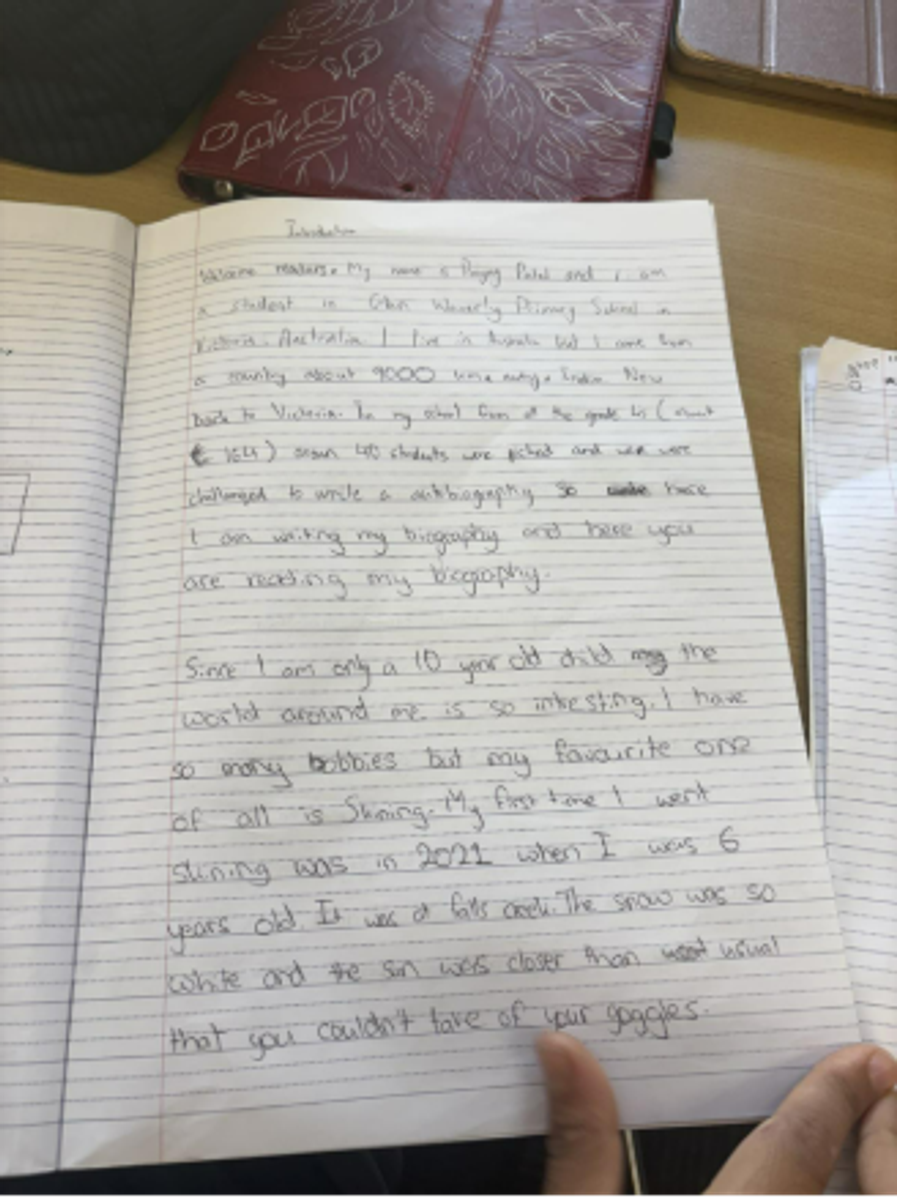 Introduction
Welcome readers. My name is Patel and I am
a student in Glen Waverly Primary School in
Victoria, Australia I live in Australia but I come from
a country about 9000 km away. India. Now
back to Victoria. In my school from all the grade
164) 40 students were picked and we were
challenged to write a autobiography so here
I am writing my biography and here you
are reading my biography.
Since I am only a 10 year old child the
world around me is so intresting. I have
so many hobbies but my favourite one
of all is Skiining. My first time I went
skiining was in 2021 when I was 6
years old. It was at falls creek. The snow was so
white and the sun was closer than usual
that you couldn't take of your goggles.